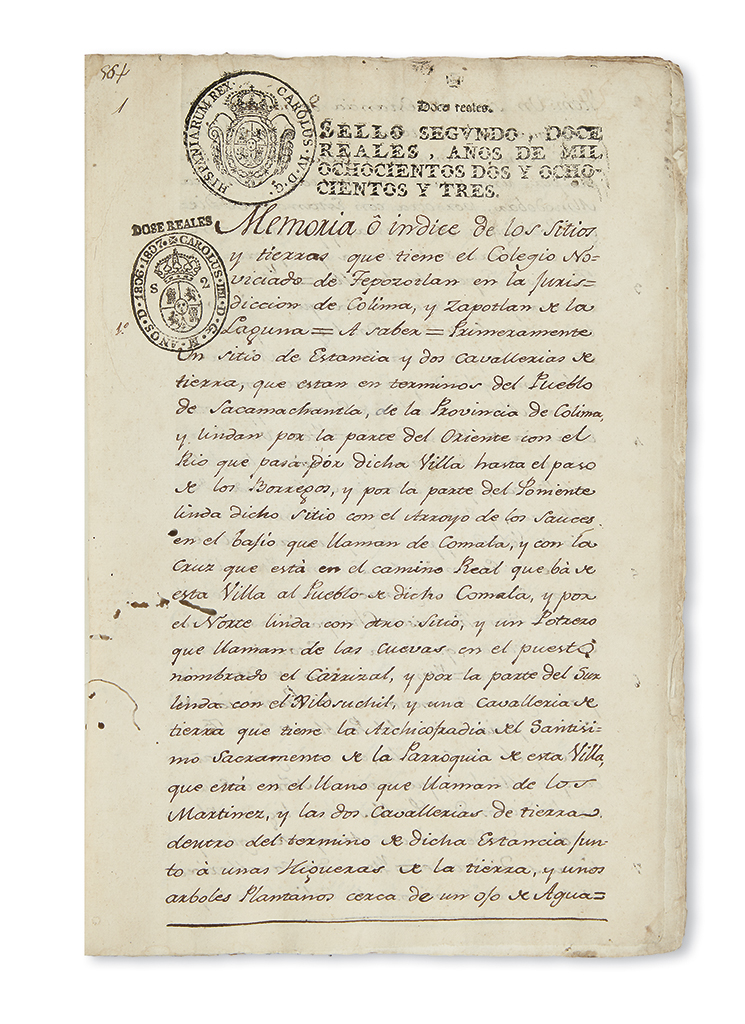 564
1
HISPANIARUM REX. CAROLUS IV. D. G.
Doce reales.
SELLO SEGVNDO, DOCE
REALES, AÑOS DE MIL
OCHOCIENTOS DOS Y OCHO-
CIENTOS Y TRES.
DOSE REALES
CAROLUS IIII. D. G.
AÑOS. D. 1806. 1807.
S 2
Memoria ô indice de los sitios
y tierras que tiene el Colegio No-
viciado de Tepozotlan en la Juris=
diccion de Colima, y Zapotlan de la
1º Laguna = A saber = Primeramente
Un sitio de Estancia y dos cavallerias de
tierra, que estan en terminos del Pueblo
de Sacamachantla, de la Provincia de Colima,
y lindan por la parte del Oriente con el
Rio que pasa por dicha Villa hasta el paso
de los Borregos, y por la parte del Poniente
linda dicho sitio con el Arroyo de los Sauces
en el bajio que llaman de Comala, y con la
Cruz que està en el camino Real que bà de
esta Villa al Pueblo de dicho Comala, y por
el Norte linda con otro Sitio, y un Potrero
que llaman de las Cuevas en el puesto
nombrado el Carrizal, y por la parte del Sur
linda con el Nilosuchil, y una Cavalleria de
tierra que tiene la Archicofradia del Santisi=
mo Sacramento de la Parroquia de esta Villa,
que està en el llano que llaman de los
Martinez, y las dos Cavallerias de tierra
dentro del termino de dicha Estancia Jun-
to à unas Higueras de la tierra, y unos
arboles Plantanos cerca de un ojo de Agua=